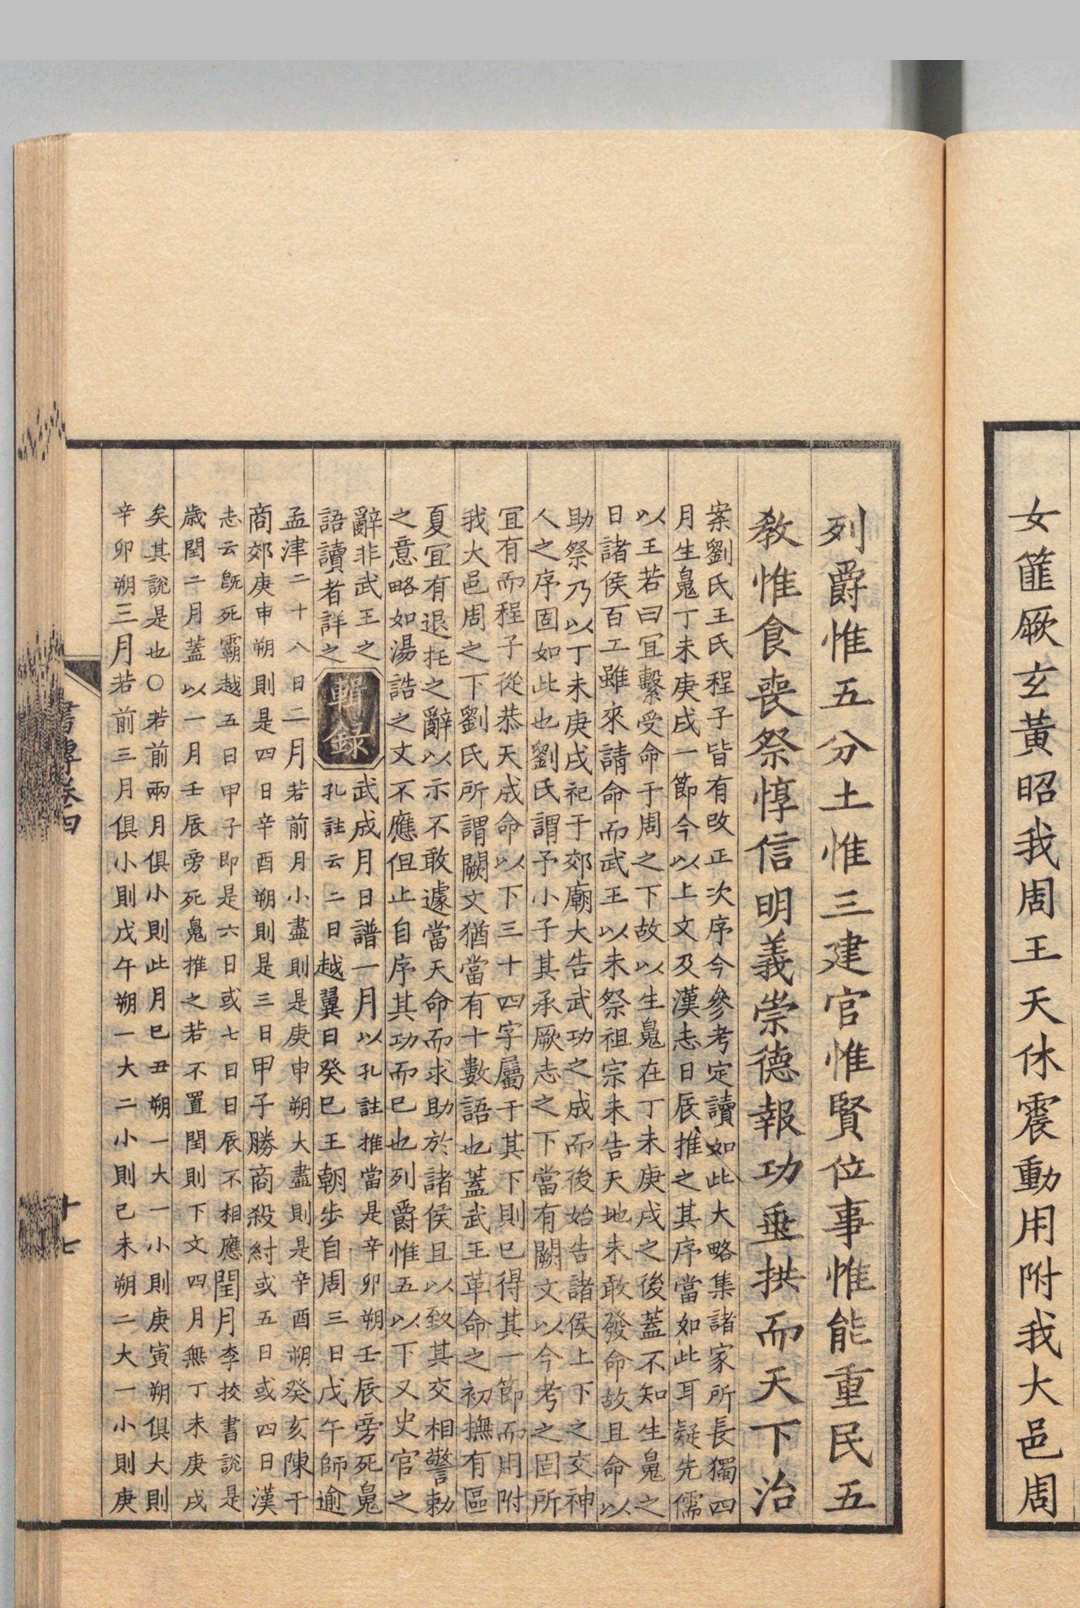 女篚厥玄黄昭我周王天休震動用附我大邑周
列爵惟五分土惟三建官惟賢位事惟能重民五
教惟食喪祭惇信明義崇德報功垂拱而天下治
案劉氏王氏程子皆有改正次序今參考定讀如此大略集諸家所長獨四
月生魄丁未庚戌一節今以上文及漢志日辰推之其序當如此耳疑先儒
以王若曰冝繫受命于周之下故以生魄在丁未庚戌之後蓋不知生魄之
日諸侯百工雖來請命而武王以未祭祖宗未告天地未敢發命故且命以
助祭乃以丁未庚戌祀于郊廟大告武功之成而後始告諸侯上下之交神
人之序固如此也劉氏謂予小子其承厥志之下當有闕文以今考之固所
冝有而程子從恭天成命以下三十四字屬于其下則已得其一節而用附
我大邑周之下劉氏所謂闕文猶當有十數語也蓋武王革命之初撫有區
夏冝有退托之辭以示不敢遽當天命而求助於諸侯且以致其交相警勑
之意略如湯誥之文不應但止自序其功而已也列爵惟五以下又史官之
辭非武王之
語讀者詳之
輯録
武成月日譜一月以孔註推當是辛卯朔壬辰旁死魄
孔註云二日越翼日癸巳王朝步自周三日戊午師逾
孟津二十八日二月若前月小盡則是庚申朔大盡則是辛酉朔癸亥陳于
商郊庚申朔則是四日辛酉朔則是三日甲子勝商殺紂或五日或四日漢
志云旣死霸越五日甲子即是六日或七日日辰不相應閏月李挍書説是
歲閏二月蓋以一月壬辰旁死魄推之若不置閏則下文四月無丁未庚戌
矣其説是也○若前兩月俱小則此月己丑朔一大一小則庚寅朔俱大則
辛卯朔三月若前三月俱小則戊午朔一大二小則己未朔二大一小則庚
書傳卷四
十七